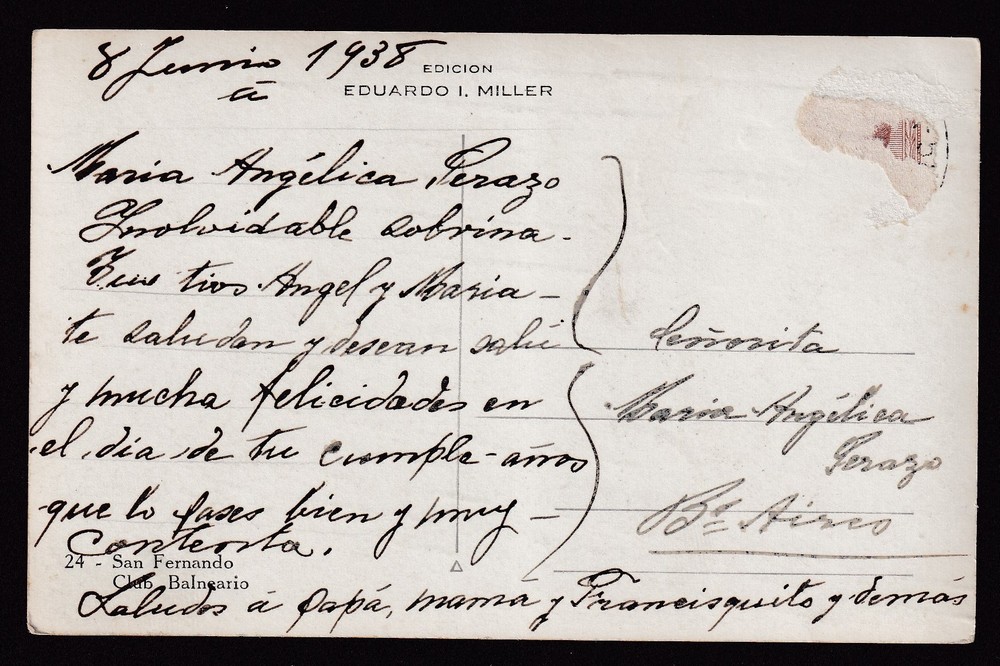 8 Junio 1938
á
EDICION
EDUARDO I. MILLER
Maria Angélica Perazo
Inolvidable sobrina.
Tus tios Angel y Maria –
te saludan y desean salú
y mucha felicidades en
el dia de tu cumple-años
que lo pases bien y muy –
Contenta.
24 - San Fernando
Club Balneario
Saludos á papá, mamá y Francisquito y demás
Señorita
Maria Angélica
Perazo
Bs Aires